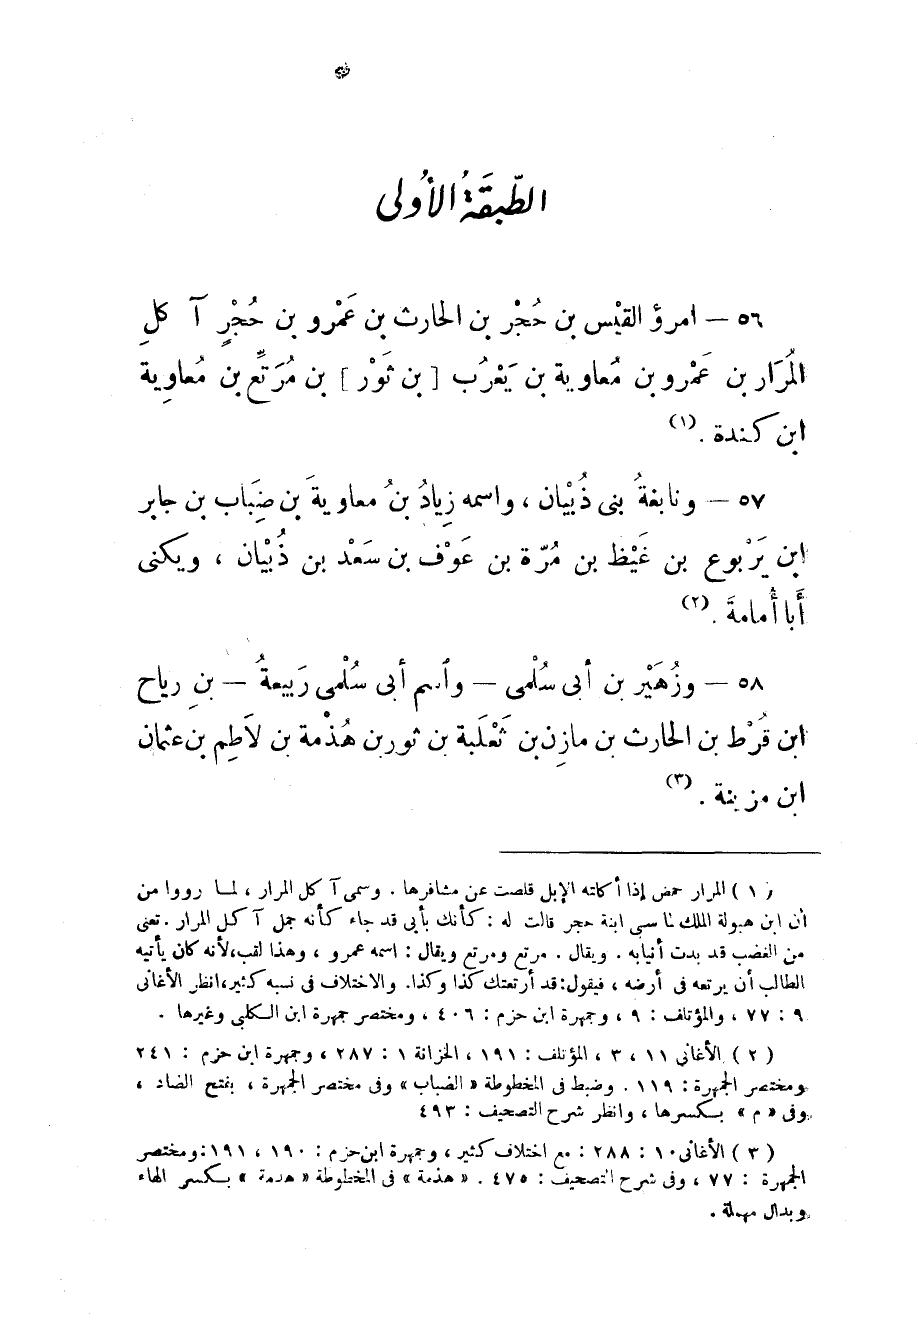 الطَّبقَةُ الأُولى
٥٦ — امرؤ القَيْس بن حُجْر بن الحارث بن عَمْرو بن حُجْرٍ آ كلِ
المُرَار بن عَمْرو بن مُعاوية بن يَعْرُب [ بن ثَوْر ] بن مُرَتِّع بن مُعاوِية
ابن كندة . (١)
٥٧ — ونابغةُ بنى ذُبْيان ، واسمه زِيادُ بنُ معاويةَ بن ضِبَاب بن جابر
ابن يَرْبوع بن غَيْظ بن مُرّة بن عَوْف بن سَعْد بن ذُبْيان ، ويكنى
أَبا أُمامةَ . (٢)
٥٨ — وزُهَيْر بن أبى سُلْمى — وٱسم أبى سُلْمى رَبيعةُ — بنِ رياح
ابن قُرْط بن الحارث بن مازِن بن ثَعْلَبة بن ثور بن هُذْمة بن لَاطِم بن عثمان
ابن مزينة . (٣)
( ١ ) المرار حمض إذا أكلته الإبل قلصت عن مشافرها . وسمى آ كل المرار ، لما رووا من
أن ابن هبولة الملك لما سبى ابنة حجر قالت له : كأنك بأبى قد جاء كأنه جمل آ كل المرار . تعنى
من الغضب قد بدت أنيابه . ويقال . مرتع ومرتع ويقال : اسمه عمرو ، وهذا لقب، لأنه كان يأتيه
الطالب أن يرتعه فى أرضه ، فيقول: قد أرتعتك كذا وكذا. والاختلاف فى نسبه كثير، انظر الأغانى
٩ : ٧٧ ، والمؤتلف : ٩ ، وجمهرة ابن حزم : ٤٠٦ ، ومختصر جمهرة ابن الكلبى وغيرها .
( ٢ ) الأغانى ١١ ، ٣ ، المؤتلف : ١٩١ ، الخزانة ١ : ٢٨٧ ، وجمهرة ابن حزم : ٢٤١
ومختصر الجمهرة : ١١٩ . وضبط فى المخطوطة « الضباب » وفى مختصر الجمهرة ، بفتح الضاد ،
وفى « م » بكسرها ، وانظر شرح التصحيف : ٤٩٣
( ٣ ) الأغانى ١٠ : ٢٨٨ : مع اختلاف كثير ، وجمهرة ابن حزم : ١٩٠ ، ١٩١ : ومختصر
الجمهرة : ٧٧ ، وفى شرح التصحيف : ٤٧٥ . « هذمة » فى المخطوطة « هدمة » بكسر الهاء
وبدال مهملة .